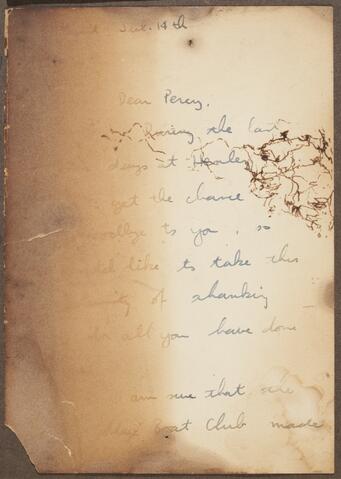 Jul. 14th
Dear Percy,
During the last
days at Henley
get the chance
goodbye to you, so
like to take this
of thanking
all you have done
am sure that the
Boat Club made